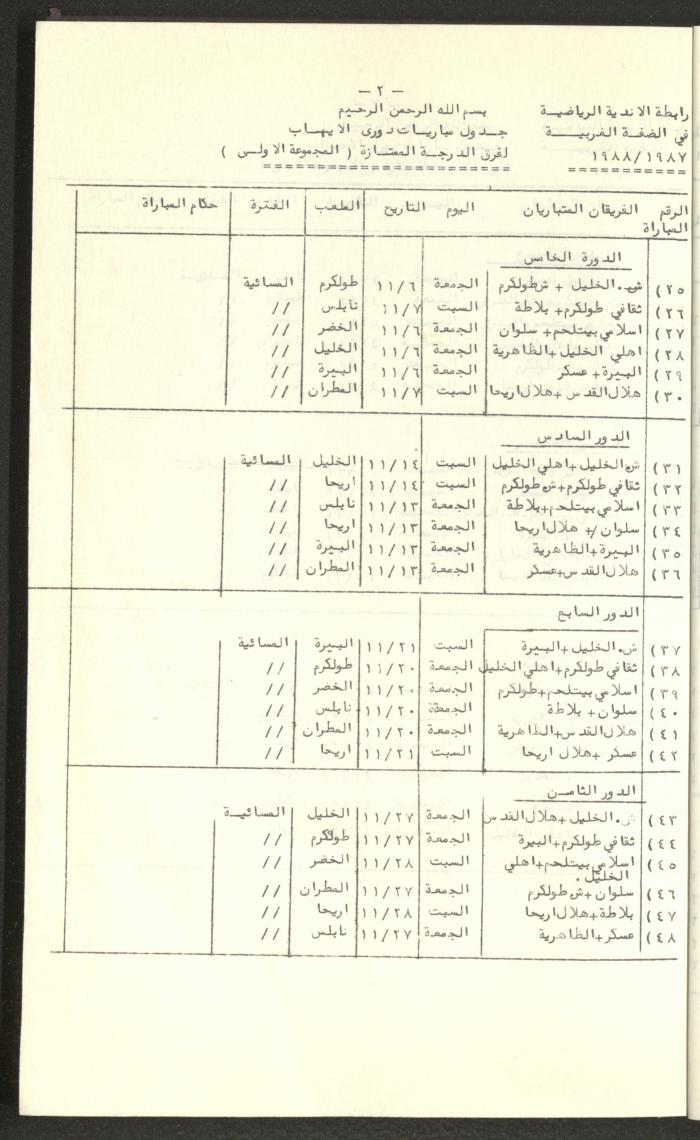 - ٢ -
رابطة الاندية الرياضيــة بسم الله الرحمن الرحيم
في الضفة الغربيــــة جـدول مباريـات دورى الايـهـاب
١٩٨٨/١٩٨٧ لفرق الدرجـة الممتـازة ( المجموعة الاولـى )
الرقم الفريقان المتباريان اليوم التاريخ الملعب الفترة حكام المباراة
المباراة
الدورة الخامس
٢٥) ش.الخليل + ش طولكرم الجمعة ١١/٦ طولكرم المسائية
٢٦) ثقافي طولكرم+ بلاطة السبت ١١/٧ نابلس //
٢٧) اسلامي بيتلحم+ سلوان الجمعة ١١/٦ الخضر //
٢٨) اهلي الخليل+الظاهرية الجمعة ١١/٦ الخليل //
٢٩) البيرة+ عسكر الجمعة ١١/٦ البيرة //
٣٠) هلال القدس+هلال اريحا السبت ١١/٧ المطران //
الدور السادس
٣١) ش.الخليل+اهلي الخليل السبت ١١/١٤ الخليل المسائية
٣٢) ثقافي طولكرم+ش طولكرم السبت ١١/١٤ اريحا //
٣٣) اسلامي بيتلحم+بلاطة الجمعة ١١/١٣ نابلس //
٣٤) سلوان /+ هلال اريحا الجمعة ١١/١٣ اريحا //
٣٥) البيرة+الظاهرية الجمعة ١١/١٣ البيرة //
٣٦) هلال القدس+عسكر الجمعة ١١/١٣ المطران //
الدور السابع
٣٧) ش.الخليل+البيرة السبت ١١/٢١ البيرة المسائية
٣٨) ثقافي طولكرم+اهلي الخليل الجمعة ١١/٢٠ طولكرم //
٣٩) اسلامي بيتلحم+طولكرم الجمعة ١١/٢٠ الخضر //
٤٠) سلوان+ بلاطة الجمعة ١١/٢٠ نابلس //
٤١) هلال القدس+الظاهرية الجمعة ١١/٢٠ المطران //
٤٢) عسكر +هلال اريحا السبت ١١/٢١ اريحا //
الدور الثامن
٤٣) ش.الخليل+هلال القدس الجمعة ١١/٢٧ الخليل المسائيـة
٤٤) ثقافي طولكرم+البيرة الجمعة ١١/٢٧ طولكرم //
٤٥) اسلامي بيتلحم+اهلي السبت ١١/٢٨ الخضر //
الخليل .
٤٦) سلوان+ش طولكرم الجمعة ١١/٢٧ المطران //
٤٧) بلاطة+هلال اريحا السبت ١١/٢٨ اريحا //
٤٨) عسكر+الظاهرية الجمعة ١١/٢٧ نابلس //